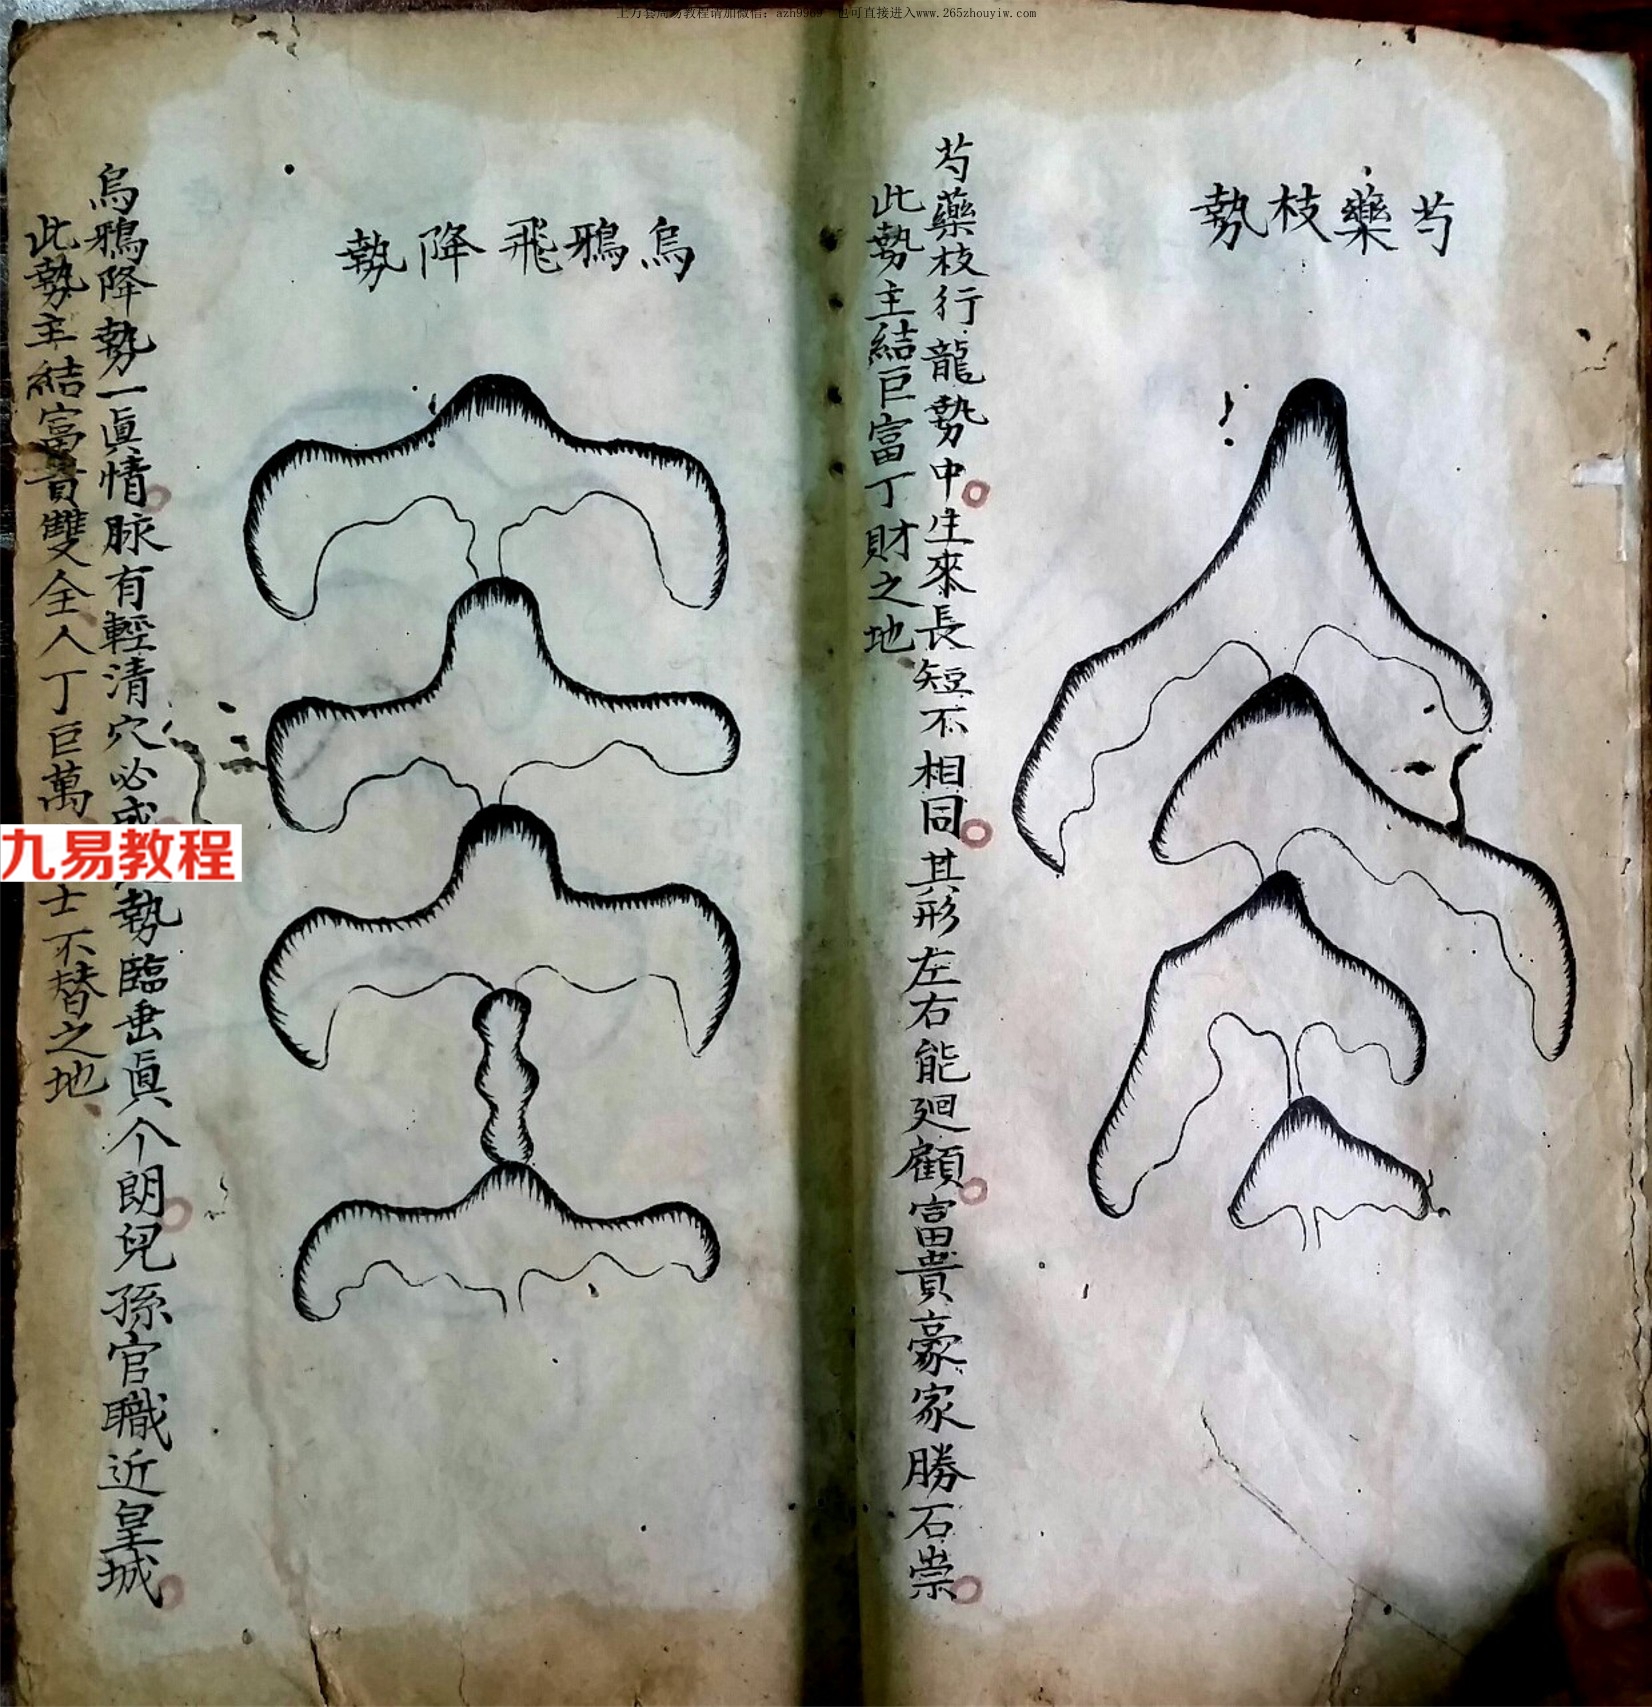 上万套周易教程请加微信：azh9969 也可直接进入www.265zhouyiw.com
芍藥枝勢
芍藥枝行龍勢中生來長短不相同其形左右能廻顧富貴豪家勝石崇
此勢主結巨富丁財之地
烏鴉飛降勢
烏鴉降勢一眞情脉有輕清穴必成勢臨垂眞个朗兒孫官職近皇城
此勢主結富貴雙全人丁巨萬士不替之地
九易教程